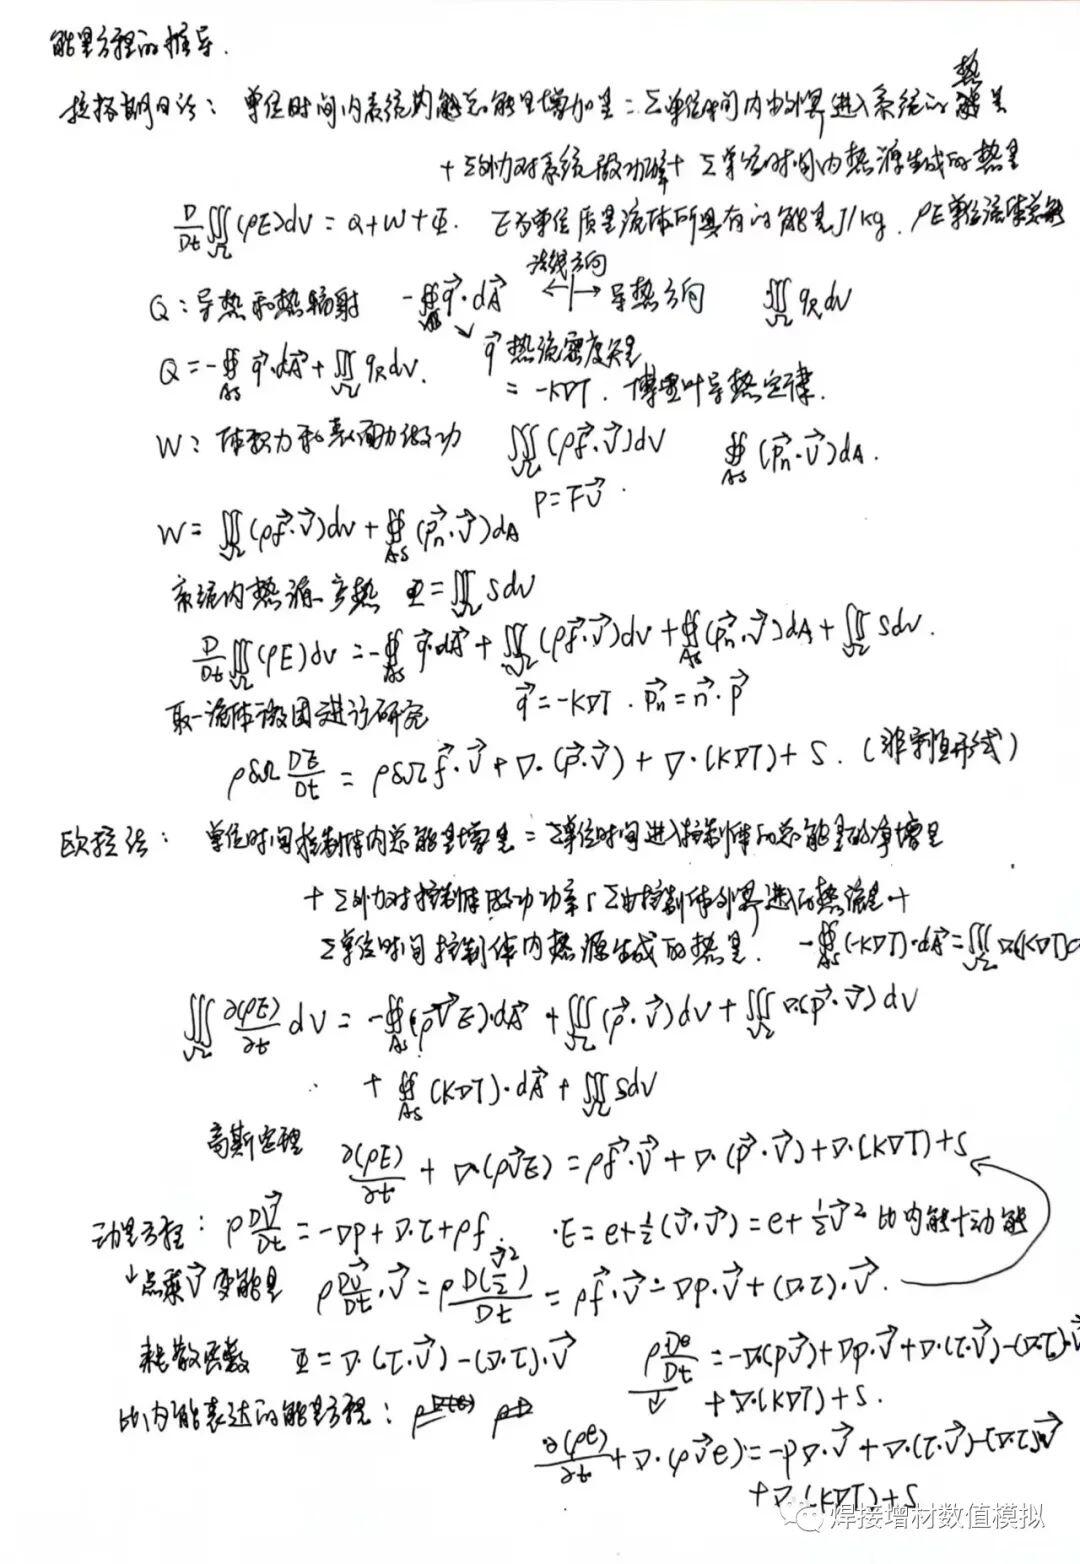 能量方程的推导.
拉格朗日法: 单位时间内系统内能总能量增加量 = Σ单位时间内由外界进入系统的热量
+ Σ外力对系统做功功率 + Σ单位时间内热源生成的热量
D/Dt ∭_Ω (ρE)dV = Q+W+Φ. E为单位质量流体所具有的能量J/kg. ρE单位流体总能
法线方向
Q: 导热和热辐射 -∯q⃗·dA⃗ ←|→ 导热方向 ∭_Ω q_R dV
Q = -∯_As q⃗·dA⃗ + ∭_Ω q_R dV. q⃗ 热流密度矢量
= -K∇T. 傅里叶导热定律.
W: 体积力和表面力做功 ∭_Ω (ρf⃗·V⃗)dV ∯_As (p⃗n·V⃗)dA.
P=FV⃗.
W = ∭_Ω (ρf⃗·V⃗)dV + ∯_As (p⃗n·V⃗)dA
系统内热源产热 Φ=∭_Ω SdV
D/Dt ∭_Ω (ρE)dV = -∯_As q⃗·dA⃗ + ∭_Ω (ρf⃗·V⃗)dV + ∯_As (p⃗n·V⃗)dA + ∭_Ω SdV.
q⃗ = -K∇T. p⃗n = n⃗·p⃗
取一流体微团进行研究
ρδΩ DE/Dt = ρδΩ f⃗·V⃗ + ∇·(p⃗·V⃗) + ∇·(K∇T) + S. (非守恒形式)
欧拉法: 单位时间控制体内总能量增量 = Σ单位时间进入控制体的总能量的净增量
+ Σ外力对控制体做功功率 + Σ由控制体外界进入的热流量 +
Σ单位时间控制体内热源生成的热量. -∯_As (-K∇T)·dA⃗ = ∭_Ω ∇·(K∇T)
∭_Ω ∂(ρE)/∂t dV = -∯_As (ρV⃗E)·dA⃗ + ∭_Ω (ρ⃗·V⃗)dV + ∭_Ω ∇·(p⃗·V⃗)dV
+ ∯_As (K∇T)·dA⃗ + ∭_Ω SdV
高斯定理 ∂(ρE)/∂t + ∇·(ρV⃗E) = ρf⃗·V⃗ + ∇·(p⃗·V⃗) + ∇·(K∇T) + S
动量方程: ρ DV⃗/Dt = -∇p + ∇·τ + ρf. ·E = e+½(V⃗·V⃗) = e+½V⃗² 比内能+动能
↓点乘V⃗ 变能量 ρ DV⃗/Dt·V⃗ = ρ D(V⃗²/2)/Dt = ρf⃗·V⃗ - ∇p·V⃗ + (∇·τ)·V⃗.
耗散函数 Φ = ∇·(τ·V⃗) - (∇·τ)·V⃗ ρ De/Dt = -∇·(pV⃗) + ∇p·V⃗ + ∇·(τ·V⃗) - (∇·τ)·V⃗
+ ∇·(K∇T) + S.
比内能表达的能量方程:
∂(ρe)/∂t + ∇·(ρV⃗e) = -p∇·V⃗ + ∇·(τ·V⃗) - (∇·τ)·V⃗
+ ∇·(K∇T) + S
焊接增材数值模拟